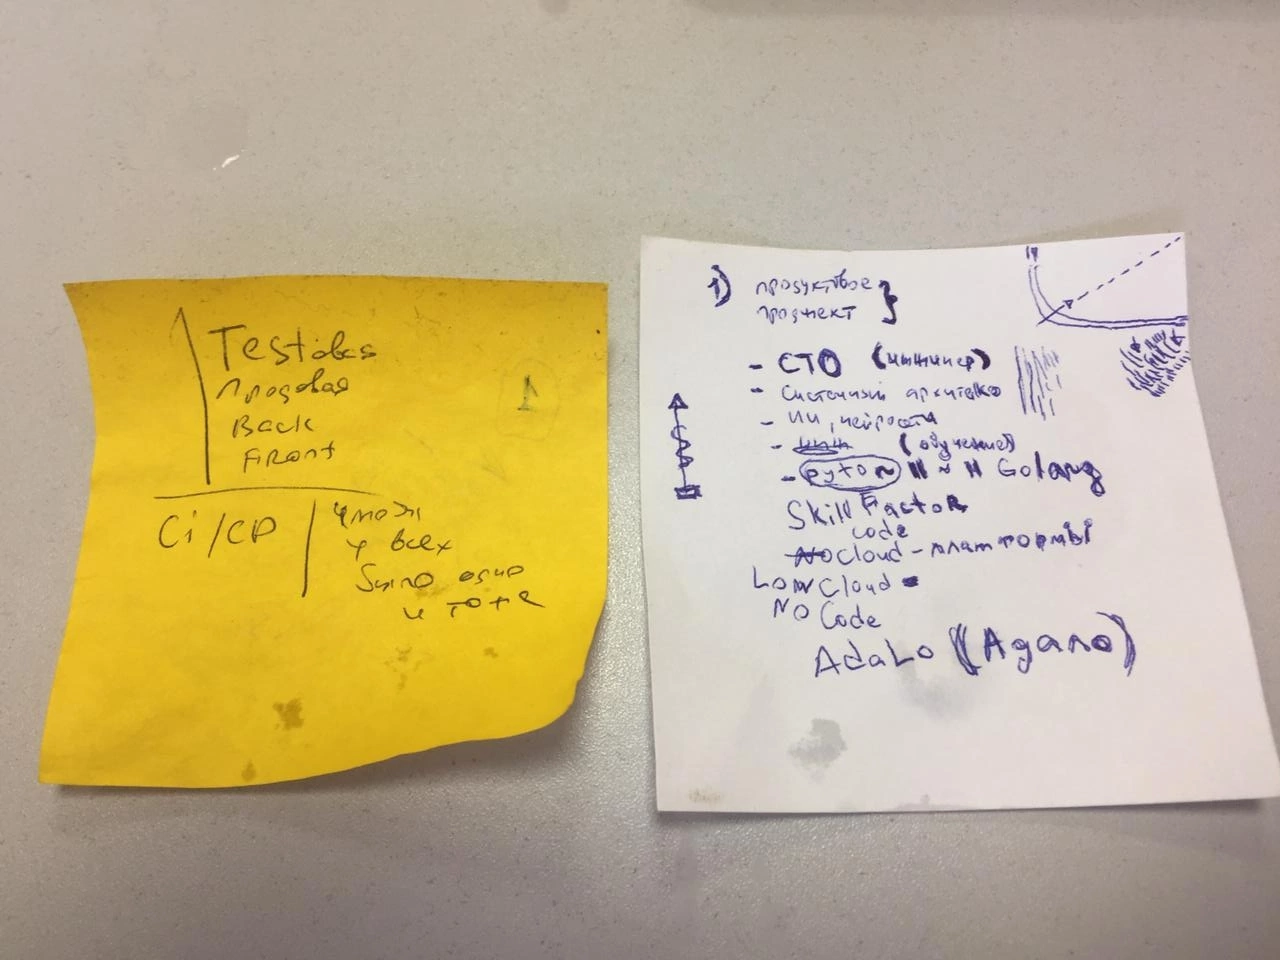 Testовая
Продовая
Back
Front
1
Ci/CD
чтобы
у всех
было одно
и тоже
1) продуктовое
проджект
- СТО (инженер)
- Системный архитекто
- ИИ, нейросети
- (обучение)
- pyton ~ Golang
Skill Factor
code
NoCloud-платформы
Low Cloud
No Code
Adalo (Адало)